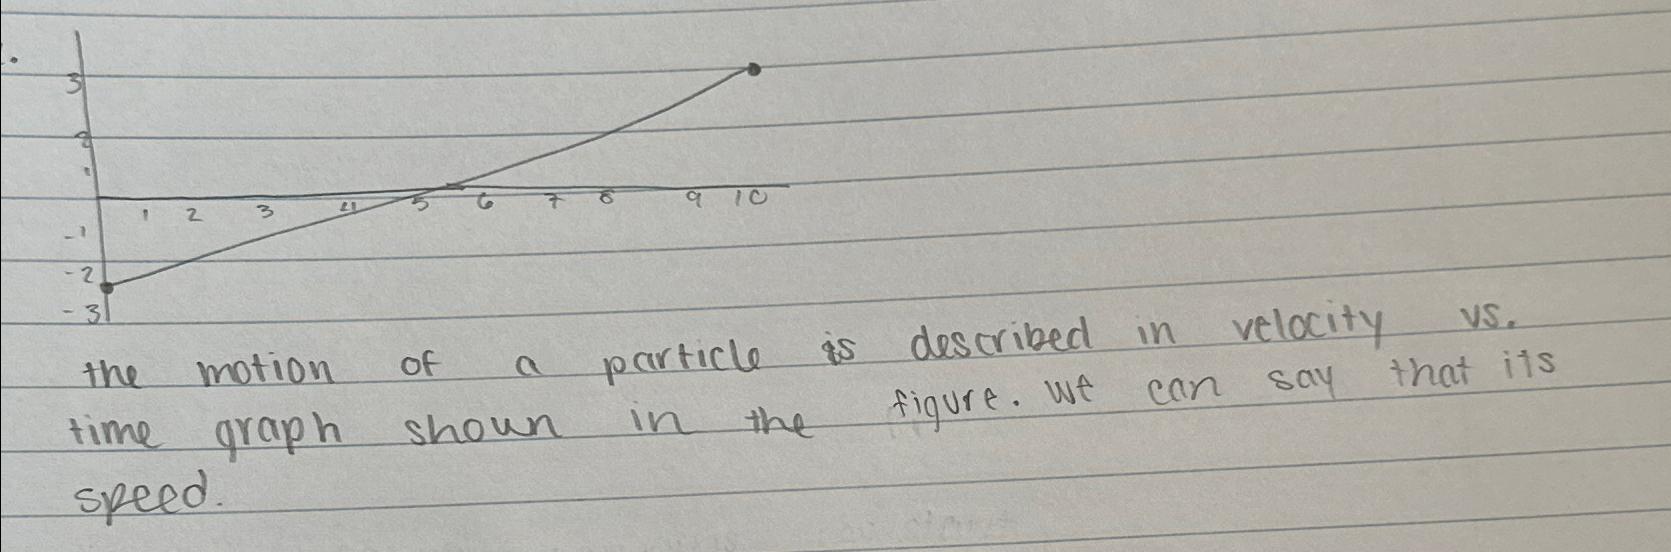 3
2
1
1 2 3 4 5 6 7 8 9 10
-1
-2
-3
the motion of a particle is described in velocity vs.
time graph shown in the figure. We can say that its
speed.